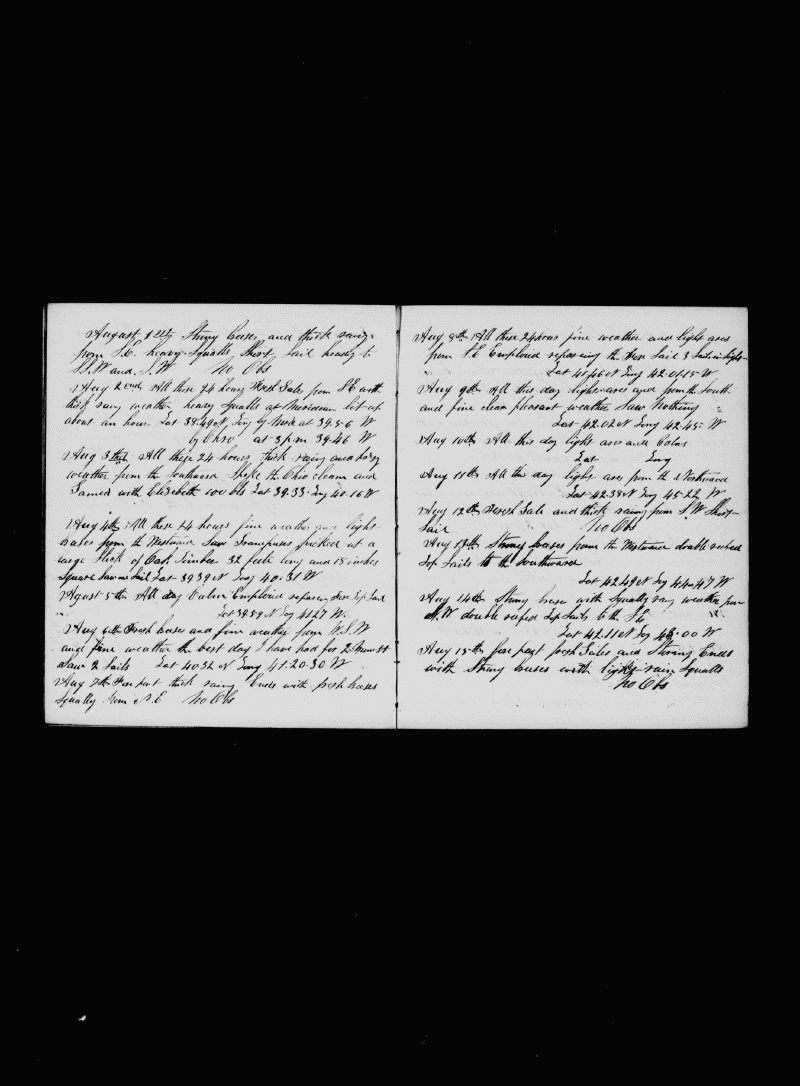 August 1st Strong breses and thick rainy
from S.E. heavy Squalls Short Sail heading to
S.S.W and S.W No Obs
Aug 2ond All these 24 hours Fresh Gales from SE with
thick rany weather heavy Squalls at Meridean let up
about an hour Lat 38.49 N Long by Work at 39.56 W
by Chro at 3 pm 39.46 W
Aug 3th All these 24 hours thick rainy and fogy
weather from the Southward Spoke the Ohio cleam and
Gamed with Elizabeth 100 bbls Lat 39.33 Long 40.16 W
Aug 4th All these 24 hours fine weather and light
bases from the Westward Saw Grampuses picked up a
large Stick of Oak Timber 32 feete long and 18 inches
Square Saw no Sail Lat 39.39 N Long 40.31 W
Agust 5th All day Calm Employed reparing Fore Top Sail
Lat 39.59 N Long 41.27 W.
Aug 6th Fresh bases and fine weather from W.S.W
and fine weather the best day I have had for 2 Months
Saw 2 Sails Lat 40.32 N Long 41.20.30 W
Aug 7th Fore part thick rainy Ends with fresh breses
Squally from N.E No Obs
Aug 8th All these 24 hours fine weather and light ares
from S.E Employed reparing the Fore Sail 3 Sails in Sight
Lat 41.46 N Long 42.01.15 W
Aug 9th All this day light ares and from the South
and fine clear pleasant weather Saw Nothing
Lat 42.02 N Long 42.45 W
Aug 10th All this day light ares and Calms
Lat Long
Aug 11th All this day light ares from the Northward
Lat 42.38 N Long 45.22 W
Aug 12th Fresh Gale and thick rainy from S.W Short
Sail No Obs
Aug 13th Strong breses from the Westward double reefed
Top Sails to the Southward
Lat 42.49 N Long 44.47 W
Aug 14th Strong brese with Squally rany weather from
S.W double reefed Top Sails to the S.E
Lat 42.11 N Long 43.00 W
Aug 15th fore part fresh Gales and Strong Ends
with Strong breses with light rain Squalls
No Obs